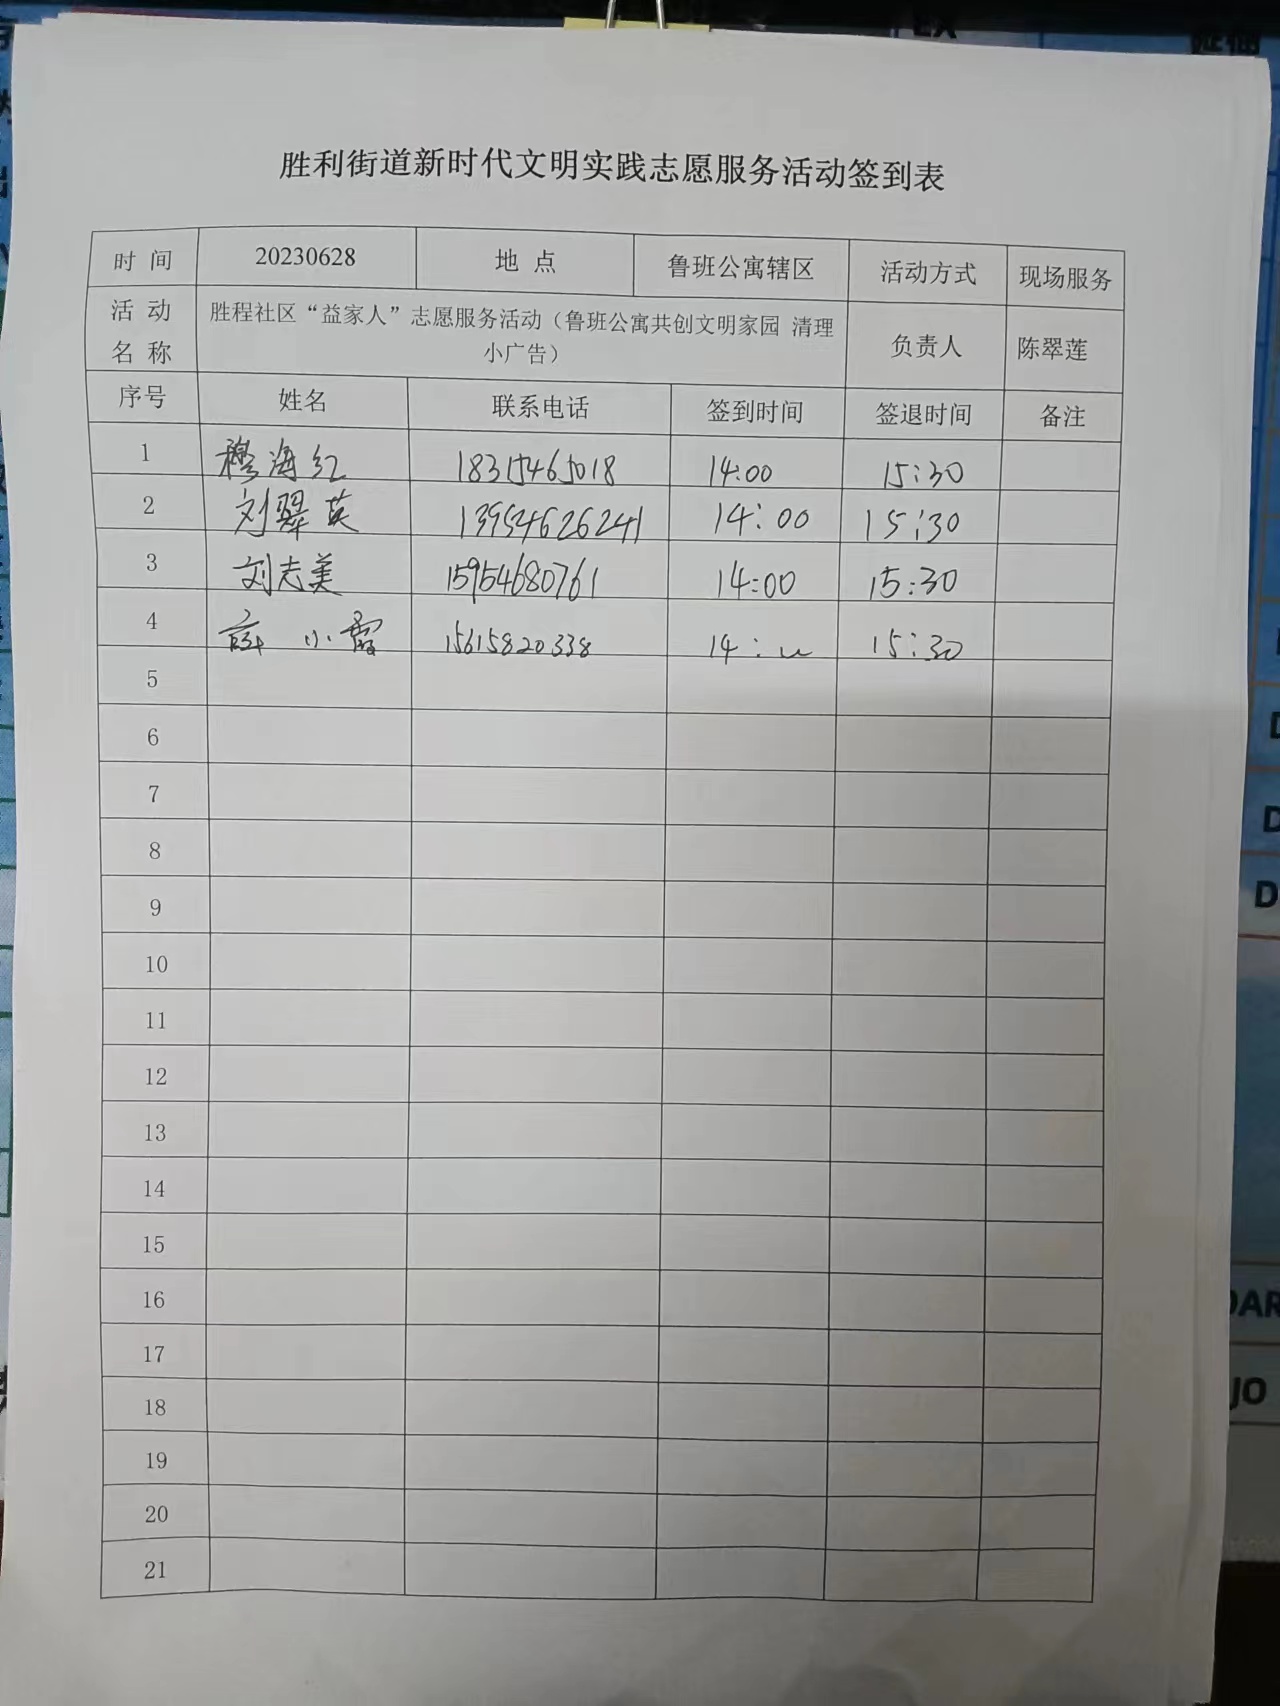 胜利街道新时代文明实践志愿服务活动签到表
时 间 20230628 地 点 鲁班公寓辖区 活动方式 现场服务
活 动 名 称 胜程社区“益家人”志愿服务活动（鲁班公寓共创文明家园 清理 负责人 陈翠莲
小广告）
序号 姓名 联系电话 签到时间 签退时间 备注
1 穆海红 18315465018 14:00 15:30
2 刘翠英 13954626241 14:00 15:30
3 刘志美 15954680761 14:00 15:30
4 薛小霞 15615820338 14: 15:30
5
6
7
8
9
10
11
12
13
14
15
16
17
18
19
20
21
DAR
JO